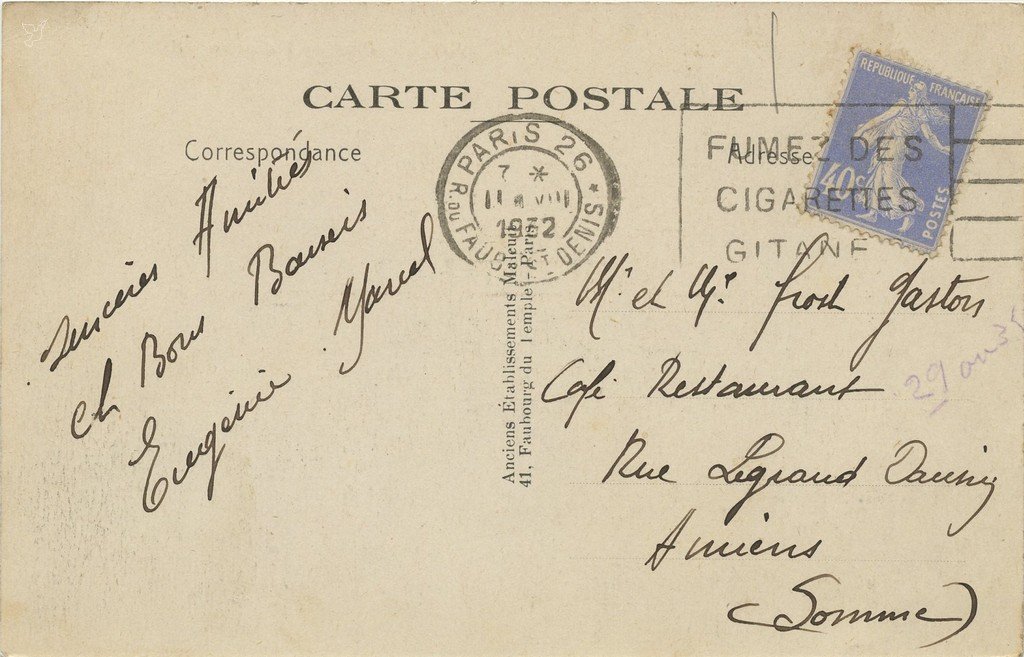 CARTE POSTALE
Correspondance
Sincères Amitiés
et Bons Baisers
Eugénie Marcel
PARIS 26
7 *
11 VIII
1932
R. DU FAUBG ST DENIS
Anciens Établissements Malcuit
41, Faubourg du Temple - Paris
FUMEZ DES
CIGARETTES
GITANE
Adresse
REPUBLIQUE FRANÇAISE
40c
POSTES
Mr et Me Frost Gaston
Café Restaurant
Rue Legrand Daussy
Amiens
(Somme)